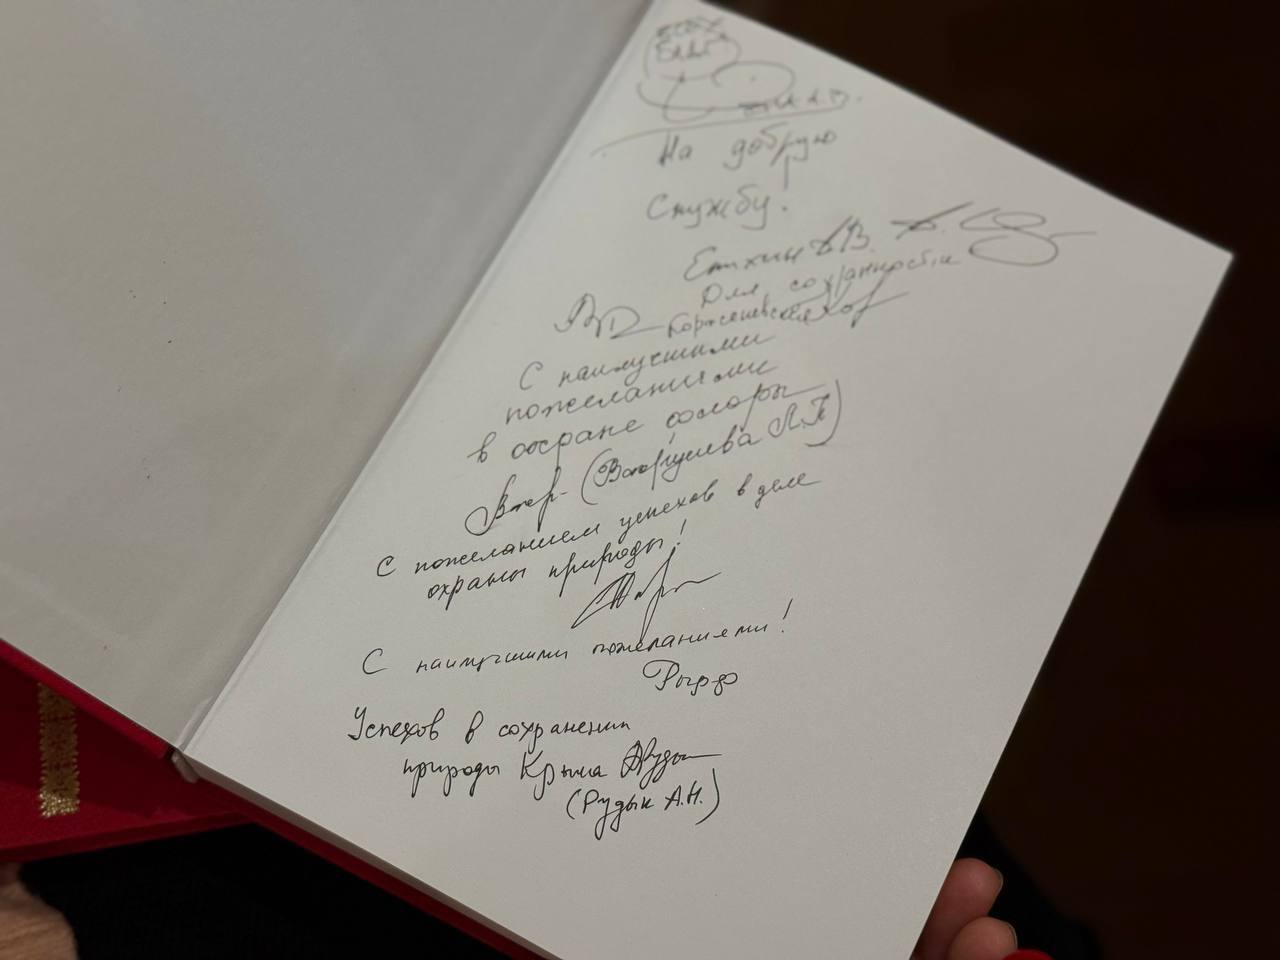 На добрую
Службу!
Епихин А.В.
Для сохранности
С наилучшими
пожеланиями
в охране флоры
(Вахрушева Л.П)
С пожеланием успехов в деле
охраны природы!
С наилучшими пожеланиями!
Успехов в сохранении
природы Крыма
(Рудык А.Н.)